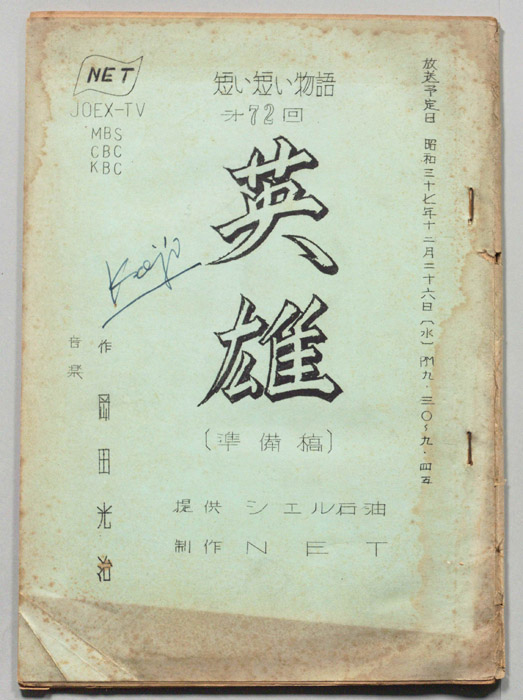 放送予定日 昭和三十七年十二月二十六日〔水〕PM九・三〇〜九・四五
NET
JOEX-TV
MBS
CBC
KBC
短い短い物語
オ72回
英雄
〔準備稿〕
Keijo
作 岡田光治
音楽
提供 シェル石油
制作 NET